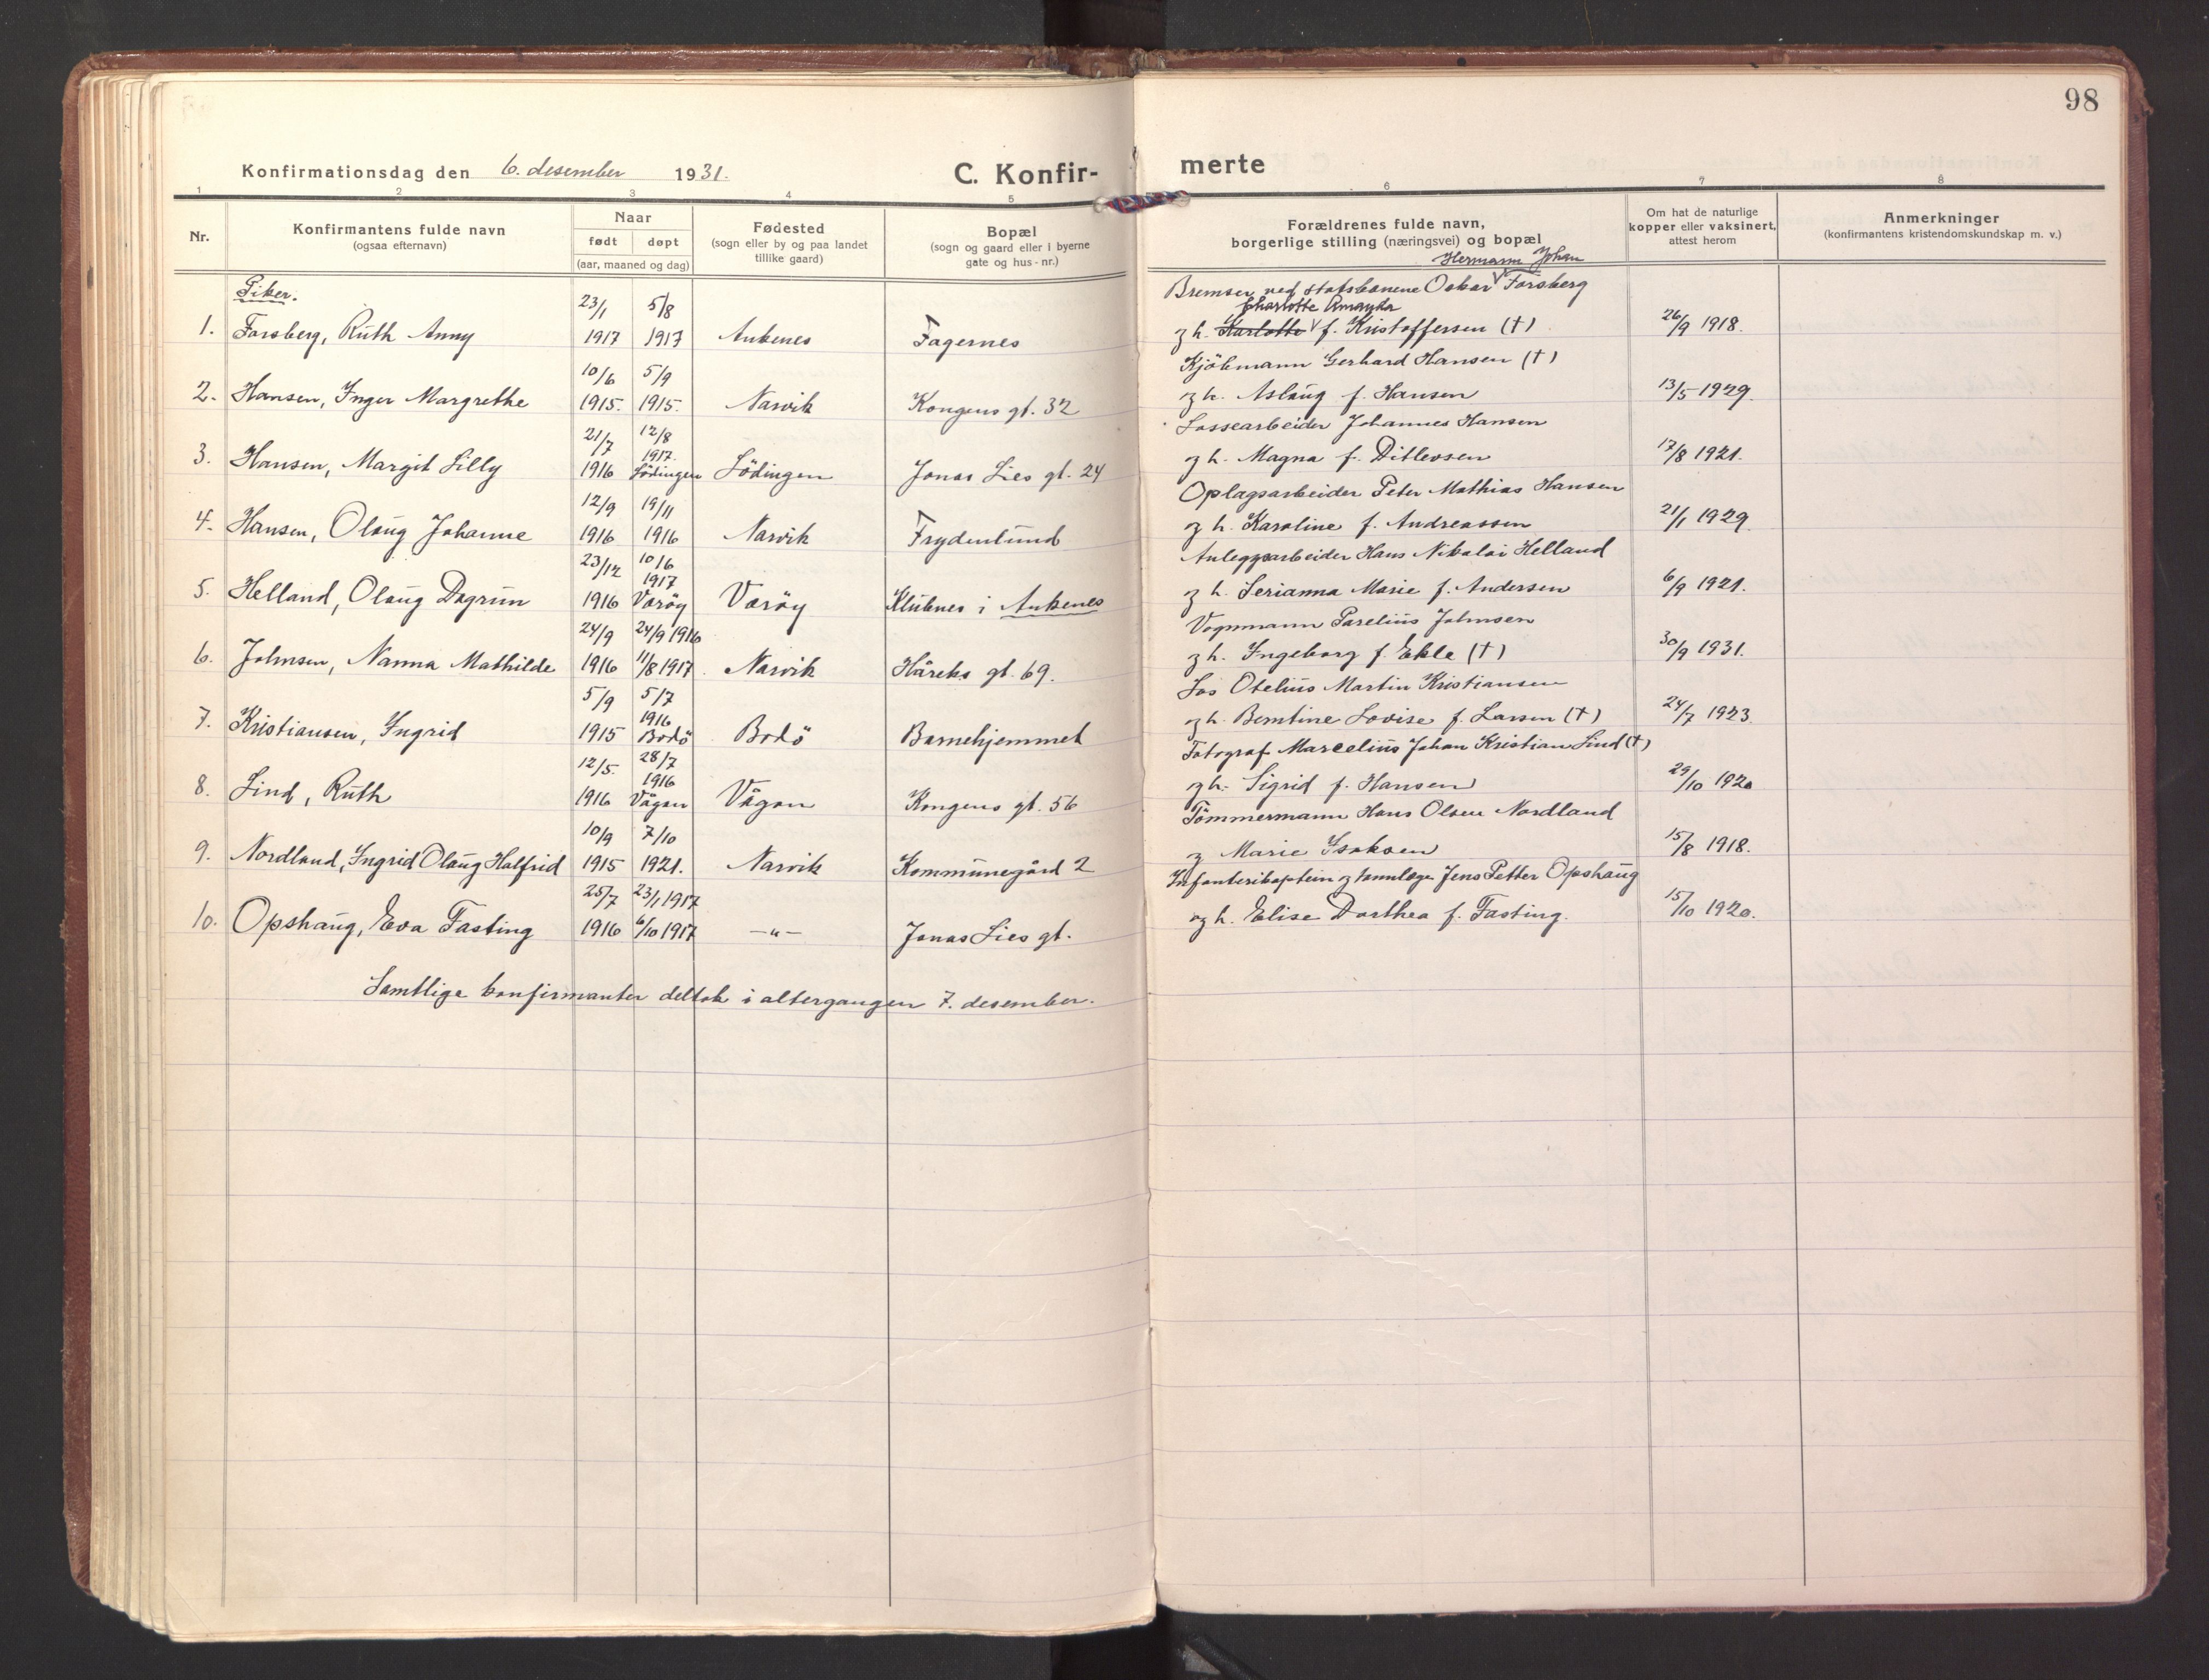 98
Konfirmationsdag den 6. desember 1931.
C. Konfir-
merte
1 2 3 4 5 6 7 8
Nr.
Konfirmantens fulde navn
(ogsaa efternavn)
Naar
født døpt
(aar, maaned og dag)
Fødested
(sogn eller by og paa landet
tillike gaard)
Bopæl
(sogn og gaard eller i byerne
gate og hus-nr.)
Forældrenes fulde navn,
borgerlige stilling (næringsvei) og bopæl
Om hat de naturlige
kopper eller vaksinert,
attest herom
Anmerkninger
(konfirmantens kristendomskundskap m. v.)
Piker.
Hermann Johan
23/1 5/8 Bremser ved statsbanene Oskar Forsberg
Charlotte Amanda
1. Forsberg, Ruth Anny 1917 1917 Ankenes Fagernes og h. Karlotte f. Kristoffersen (†) 26/9 1918.
10/6 5/9 Kjöbmann Gerhard Hansen (†)
2. Hansen, Inger Margrethe 1915. 1915. Narvik Kongens gt. 32 og h. Aslaug f. Hansen 13/5 1929.
21/7 12/8 1917. Lossearbeider Johannes Hansen
3. Hansen, Margit Lilly 1916 Lödingen Lödingen Jonas Lies gt. 24 og h. Magna f. Ditlevsen 17/8 1921.
12/9 19/11 Oplagsarbeider Peter Mathias Hansen
4. Hansen, Olaug Johanne 1916 1916 Narvik Frydenlund og h. Karoline f. Andreassen 21/1 1929.
23/12 10/6 1917 Anleggsarbeider Hans Nikolai Helland
5. Helland, Olaug Dagrun 1916 Varöy Varöy Klubnes i Ankenes og h. Serianna Marie f. Andersen 6/9 1921.
24/9 24/9 1916 Vognmann Parelius Johnsen
6. Johnsen, Nanna Mathilde 1916 11/8 1917. Narvik Håreks gt. 69. og h. Ingeborg f. Ekle (†) 30/9 1931.
5/9 5/7 1916 Los Otelius Martin Kristiansen
7. Kristiansen, Ingrid 1915 Bodö Bodö Barnehjemmet og h. Berntine Lovise f. Larsen (†) 24/7 1923.
12/5. 28/7 1916 Fotograf Marcelius Johan Kristian Lind (†)
8. Lind, Ruth 1916 Vågan Vågan Kongens gt. 56 og h. Sigrid f. Hansen 29/10 1920
10/9 7/10 Tömmermann Hans Olsen Nordland
9. Nordland, Ingrid Olaug Halfrid 1915 1921. Narvik Kommunegård 2 og Marie Isaksen 15/8 1918.
25/7 23/1 1917 Infanterikaptein og tannlæge Jens Petter Opshaug
10. Opshaug, Eva Fasting 1916 6/10 1917 —"— Jonas Lies gt. og h. Elise Dorthea f. Fasting. 15/10 1920.
Samtlige konfirmanter deltok i altergangen 7. desember.